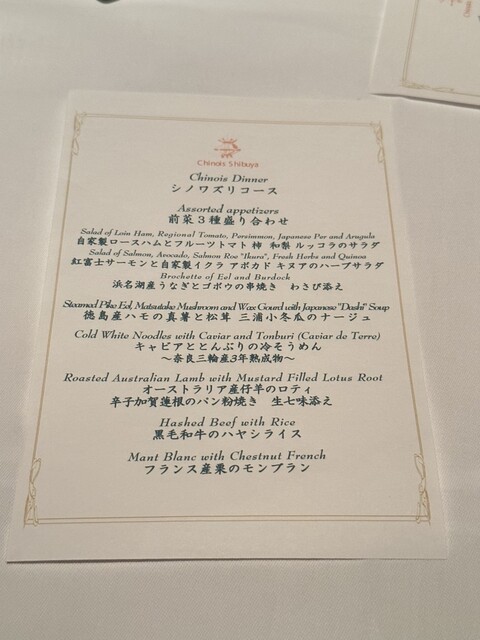 Chinois Shibuya
Chinois Dinner
シノワズリコース
Assorted appetizers
前菜３種盛り合わせ
Salad of Loin Ham, Regional Tomato, Persimmon, Japanese Per and Arugula
自家製ロースハムとフルーツトマト 柿 和梨 ルッコラのサラダ
Salad of Salmon, Avocado, Salmon Roe "Ikura", Fresh Herbs and Quinoa
紅富士サーモンと自家製イクラ アボカド キヌアのハーブサラダ
Brochette of Eel and Burdock
浜名湖産うなぎとゴボウの串焼き わさび添え
Steamed Pike Eel, Matsutake Mushroom and Wax Gourd with Japanese "Dashi" Soup
徳島産ハモの真薯と松茸 三浦小冬瓜のナージュ
Cold White Noodles with Caviar and Tonburi (Caviar de Terre)
キャビアととんぶりの冷そうめん
～奈良三輪産3年熟成物～
Roasted Australian Lamb with Mustard Filled Lotus Root
オーストラリア産仔羊のロティ
辛子加賀蓮根のパン粉焼き 生七味添え
Hashed Beef with Rice
黒毛和牛のハヤシライス
Mant Blanc with Chestnut French
フランス産栗のモンブラン